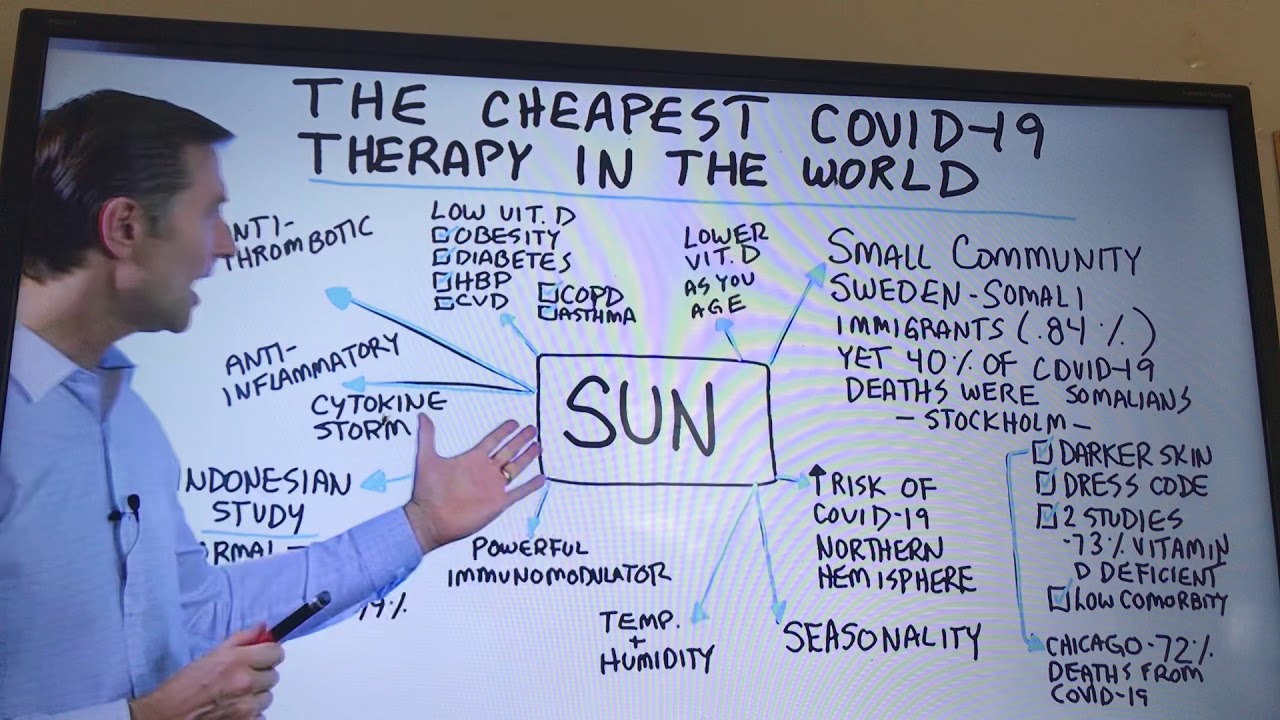 THE CHEAPEST COVID-19
THERAPY IN THE WORLD
NTI-
THROMBOTIC
LOW VIT. D
OBESITY
DIABETES
HBP
CVD
COPD
ASTHMA
LOWER
VIT. D
AS YOU
AGE
SMALL COMMUNITY
SWEDEN-SOMALI
IMMIGRANTS (.84%)
YET 40% OF COVID-19
DEATHS WERE SOMALIANS
- STOCKHOLM -
ANTI-
INFLAMMATORY
CYTOKINE
STORM
SUN
NDONESIAN
STUDY
ORMAL -
POWERFUL
IMMUNOMODULATOR
TEMP.
+
HUMIDITY
SEASONALITY
↑ RISK OF
COVID-19
NORTHERN
HEMISPHERE
DARKER SKIN
DRESS CODE
2 STUDIES
-73% VITAMIN
D DEFICIENT
LOW COMORBITY
CHICAGO-72%
DEATHS FROM
COVID-19